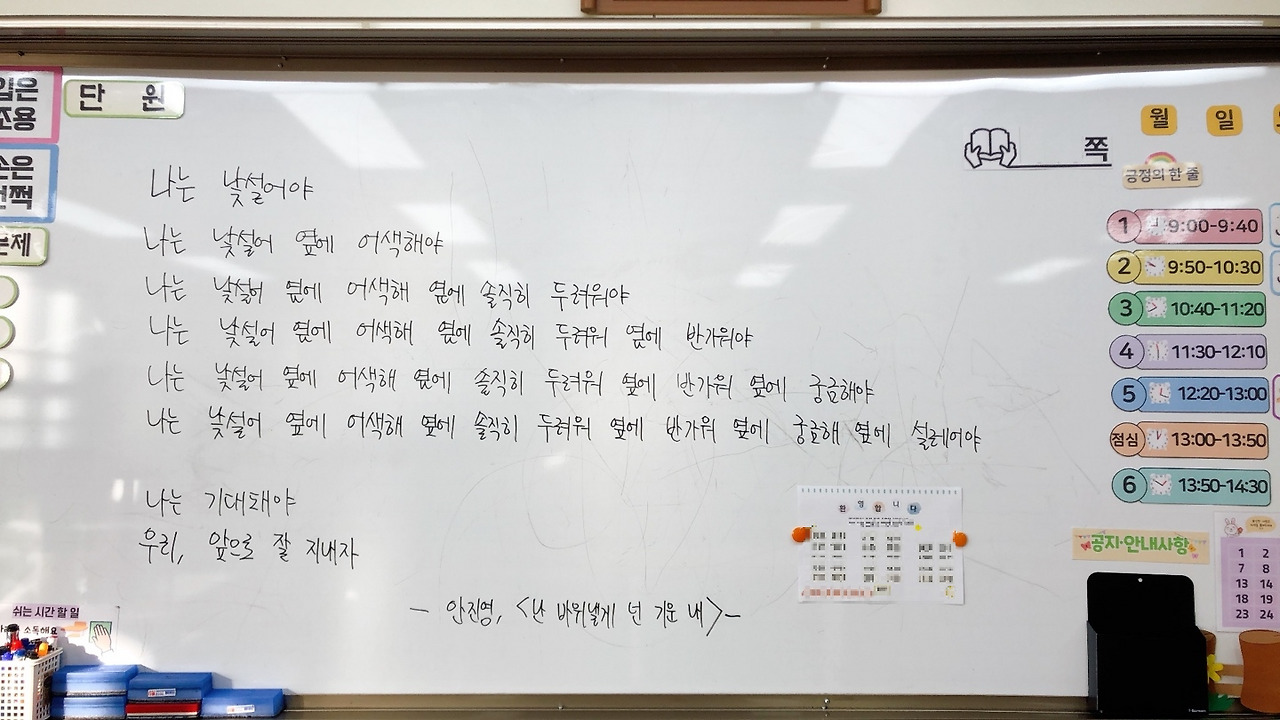 단 원
조용
나는 낯설어야
나는 낯설어 옆에 어색해야
나는 낯설어 옆에 어색해 옆에 솔직히 두려워야
나는 낯설어 옆에 어색해 옆에 솔직히 두려워 옆에 반가워야
나는 낯설어 옆에 어색해 옆에 솔직히 두려워 옆에 반가워 옆에 궁금해야
나는 낯설어 옆에 어색해 옆에 솔직히 두려워 옆에 반가워 옆에 궁금해 옆에 설레어야
나는 기대돼야
우리, 앞으로 잘 지내자
- 안진영, <난 바위낼게 넌 기운 내> -
환영합니다
쉬는 시간 할 일
소독해요
월 일
쪽
긍정의 한 줄
1 9:00-9:40
2 9:50-10:30
3 10:40-11:20
4 11:30-12:10
5 12:20-13:00
점심 13:00-13:50
6 13:50-14:30
공지·안내사항
1 2
7 8
13 14
18 19
23 24